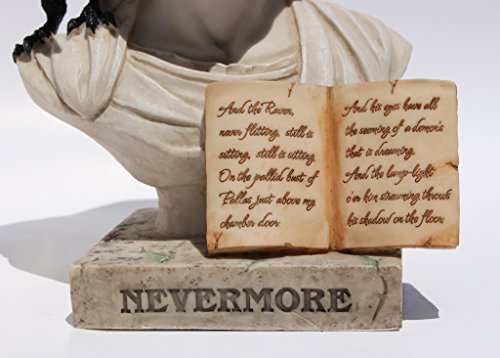 And the Raven,
never flitting, still is
sitting, still is sitting.
On the pallid bust of
Pallas just above my
chamber door.
And his eyes have all
the seeming of a demon's
that is dreaming,
And the lamp-light
o'er him streaming throws
his shadow on the floor.
NEVERMORE